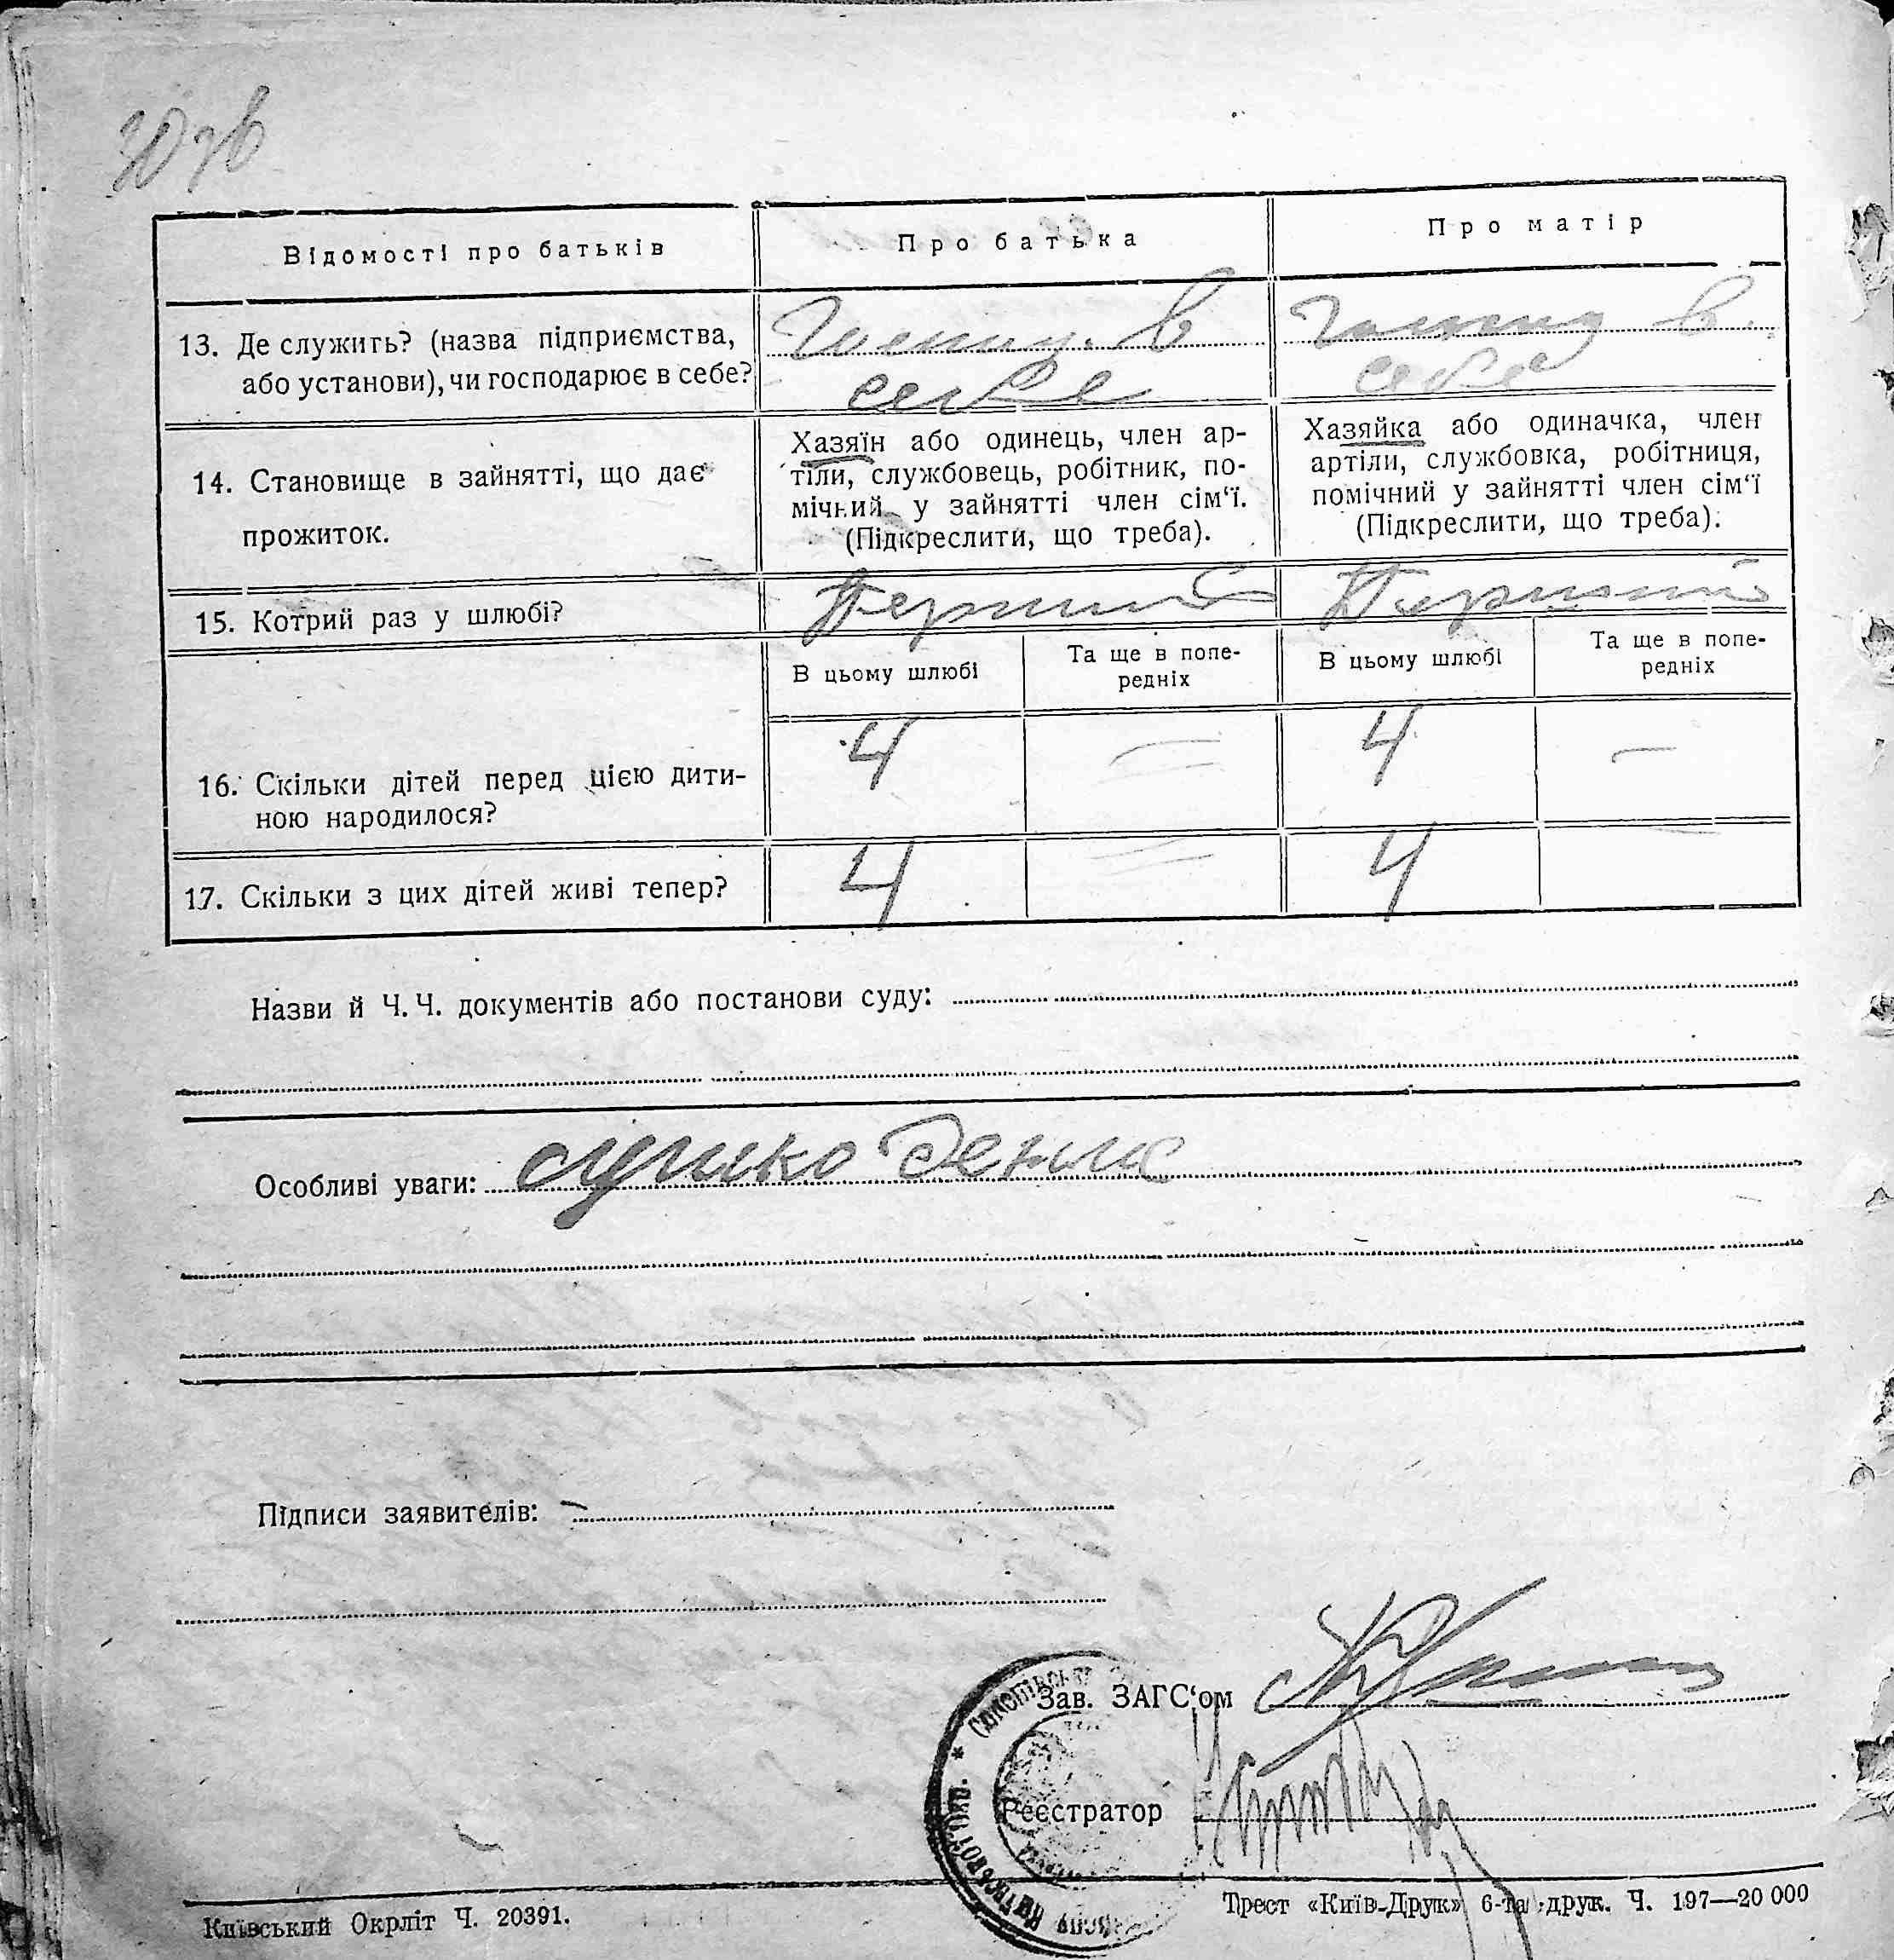 30 зв
Відомості про батьків
Про батька
Про матір
13. Де служить? (назва підприємства,
або установи), чи господарює в себе?
в
себе
в
себе
14. Становище в зайнятті, що дає
прожиток.
Хазяїн або одинець, член ар-
тіли, службовець, робітник, по-
мічний у зайнятті член сім‘ї.
(Підкреслити, що треба).
Хазяйка або одиначка, член
артіли, службовка, робітниця,
помічний у зайнятті член сім‘ї
(Підкреслити, що треба).
15. Котрий раз у шлюбі?
Перший
Перший
В цьому шлюбі
Та ще в попе-
редніх
В цьому шлюбі
Та ще в попе-
редніх
16. Скільки дітей перед цією дити-
ною народилося?
4
—
4
—
17. Скільки з цих дітей живі тепер?
4
—
4
Назви й Ч. Ч. документів або постанови суду:
Особливі уваги: Сушко Денис
Підписи заявителів:
Зав. ЗАГС‘ом
Реєстратор
Київський Окрліт Ч. 20391.
Трест «Київ-Друк» 6-та друк. Ч. 197—20 000